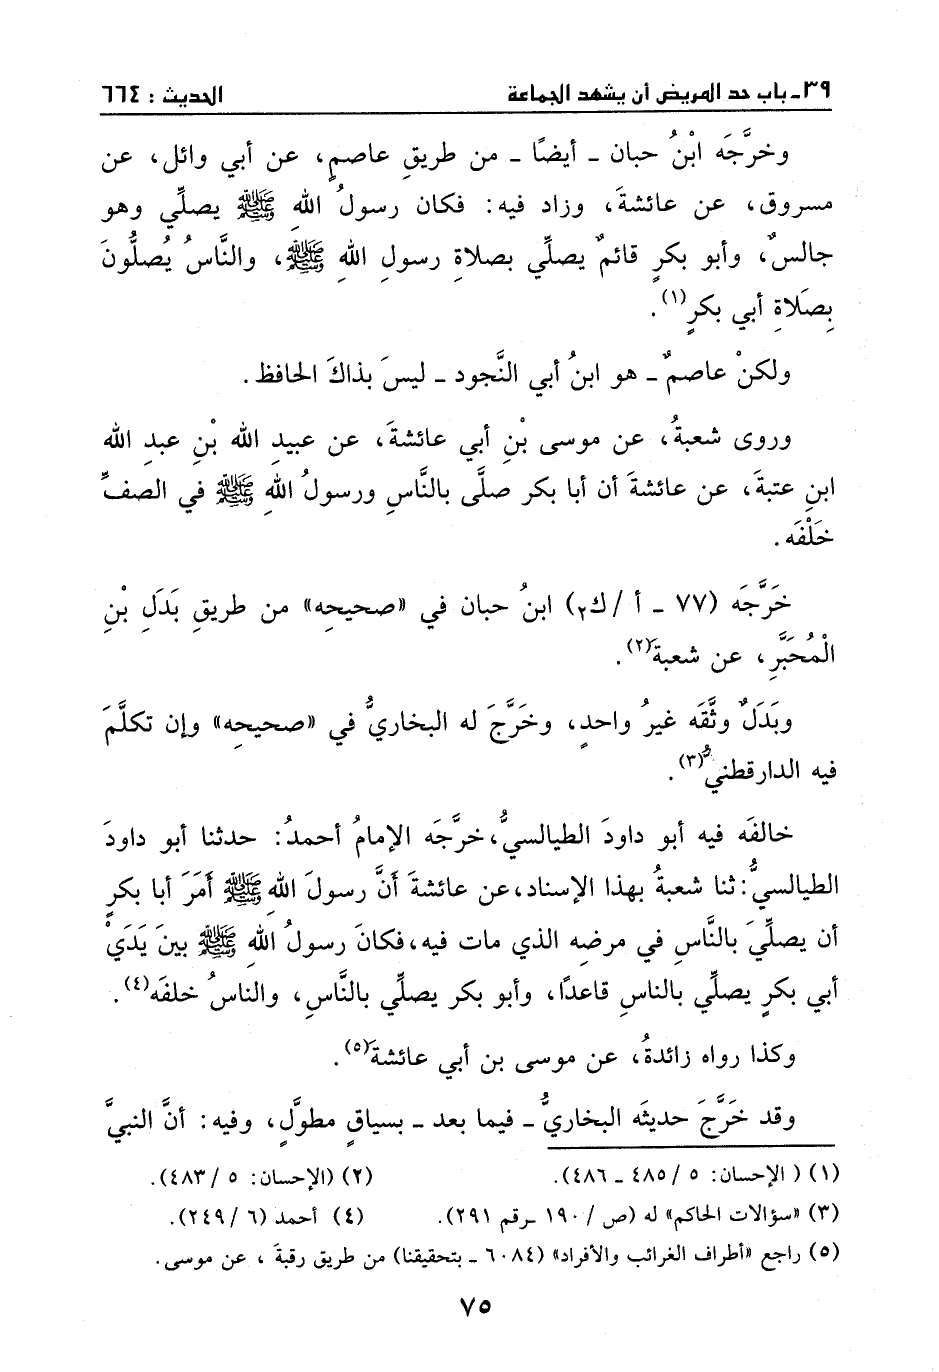 ٣٩ـ باب حد المريض أن يشهد الجماعة الحديث : ٦٦٤
وخرَّجَه ابْنُ حبان ـ أيضًا ـ من طريقِ عاصمٍ، عن أبي وائل، عن
مسروق، عن عائشةَ، وزاد فيه: فكان رسولُ اللهِ ﷺ يصلِّي وهو
جالسٌ، وأبو بكرٍ قائمٌ يصلِّي بصلاةِ رسولِ اللهِ ﷺ، والنَّاسُ يُصلُّونَ
بِصَلاةِ أبي بكرٍ(١).
ولكنْ عاصمٌ ـ هو ابنُ أبي النَّجود ـ ليسَ بذاكَ الحافظ.
وروى شعبةُ، عن موسى بْنِ أبي عائشةَ، عن عبيدِ الله بْنِ عبدِ الله
ابنِ عتبةَ، عن عائشةَ أن أبا بكر صلَّى بالنَّاسِ ورسولُ اللهِ ﷺ في الصفِّ
خَلْفَه.
خَرَّجَه (٧٧ ـ أ / ك٢) ابنُ حبان في «صحيحِه» من طريقِ بَدَلِ بْنِ
الْمُحَبَّرِ، عن شعبةَ(٢).
وبَدَلٌ وثَّقَه غيرُ واحدٍ، وخرَّجَ له البخاريُّ في «صحيحِه» وإن تكلَّمَ
فيه الدارقطنيُّ(٣).
خالفَه فيه أبو داودَ الطيالسيُّ، خرَّجَه الإمامُ أحمدُ: حدثنا أبو داودَ
الطيالسيُّ: ثنا شعبةُ بهذا الإسناد، عن عائشةَ أنَّ رسولَ اللهِ ﷺ أَمَرَ أبا بكرٍ
أن يصلِّيَ بالنَّاسِ في مرضه الذي مات فيه، فكانَ رسولُ اللهِ ﷺ بينَ يَدَيْ
أبي بكرٍ يصلِّي بالناسِ قاعدًا، وأبو بكر يصلِّي بالنَّاسِ، والناسُ خلفَه(٤).
وكذا رواه زائدةُ، عن موسى بن أبي عائشةَ(٥).
وقد خَرَّجَ حديثَه البخاريُّ ـ فيما بعد ـ بسياقٍ مطولٍ، وفيه: أنَّ النبيَّ
(١) (الإحسان: ٥ /٤٨٥ ـ ٤٨٦). (٢) (الإحسان: ٥ /٤٨٣).
(٣) «سؤالات الحاكم» له (ص / ١٩٠ ـرقم ٢٩١). (٤) أحمد (٦ /٢٤٩).
(٥) راجع «أطراف الغرائب والأفراد» (٦٠٨٤ ـ بتحقيقنا) من طريق رقبةَ ، عن موسى.
٧٥